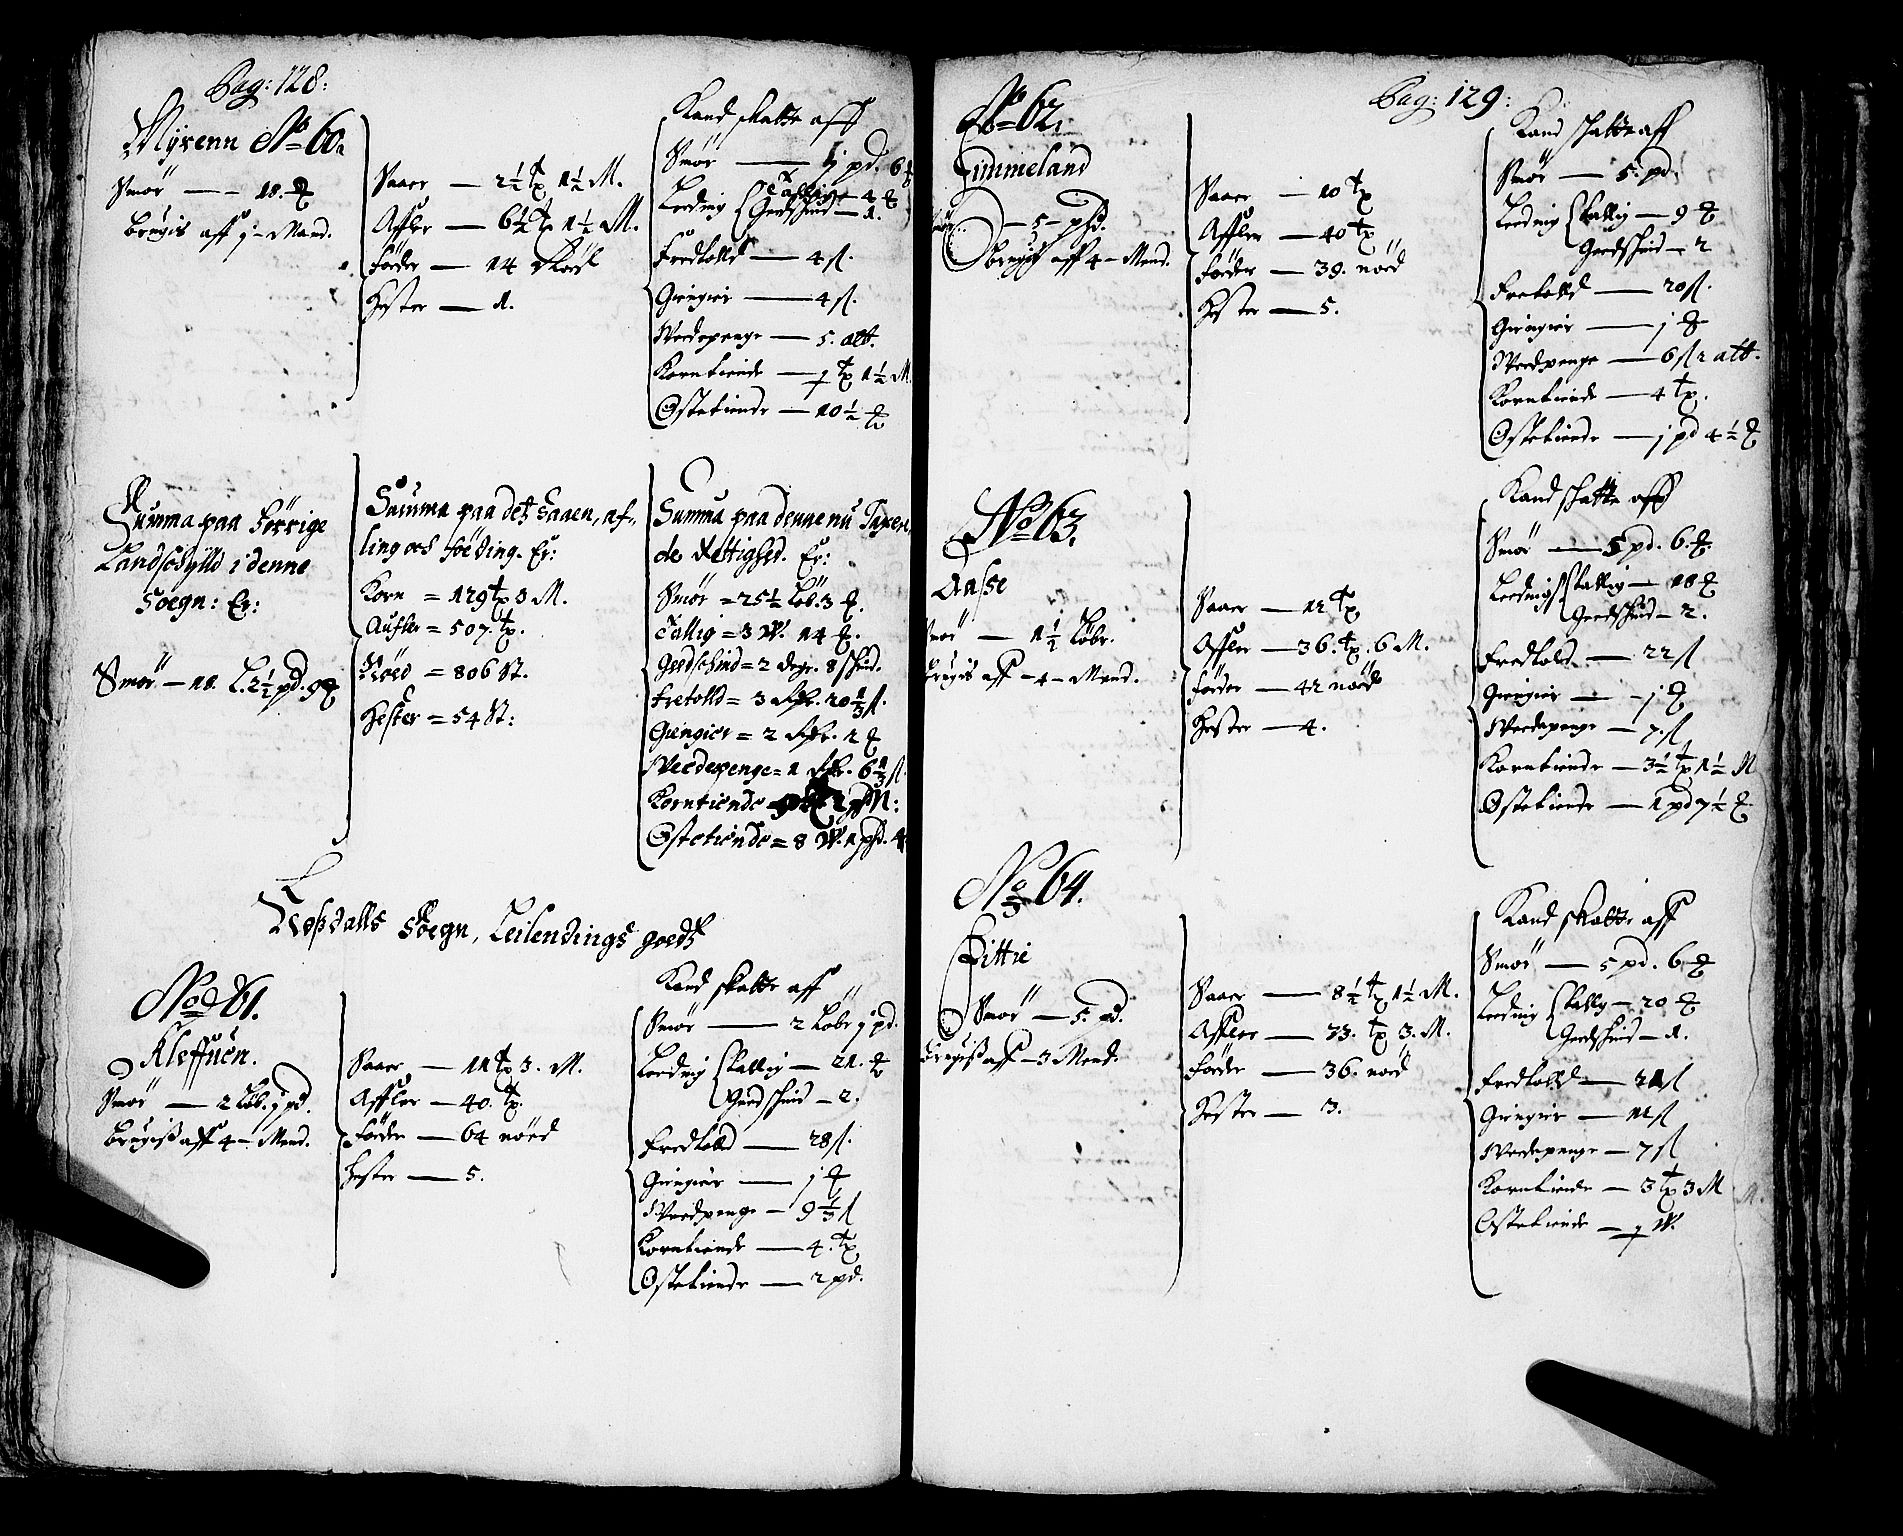 Pag: 128:
Myrenn No 60.
Smør — 18. ℔
brugis aff j – Mand.
Saaer — 2½ tx 1½ M.
Affler — 6½ tx 1½ M.
føder — 14
hester — 1.
Kand skatte aff
Smør — j pd. 6 ℔
Leeding Tallig — 4 ℔
Geedskind — 1.
Fredtolld — 4 ſl.
Giengier — 4 ſl.
Weedepenge — 5. alb.
Korntiende — j tx 1½ M.
Ostetiende — 10½ ℔
Summa paa forrige
Landschylld i denne
Soegn: Er:
Smør — 18 L. 2½ pd. 9 ℔
Summa paa detz Saaen, af-
ling och foeding. Er:
Korn = 129 tx 3 M.
Aufler = 507. tx.
Nöed = 806 St.
Hester = 54 St:
Summa paa denne nu Taxere,
de Rettighed. Er:
Smør = 25½ Løb. 3 ℔.
Tallig = 3 W. 14 ℔.
Geedschind = 2 degr. 8 schind.
fretolld = 3 Rdr. 20⅓ ſl.
Giengier = 2 Rdr. 1 ℔
Weedepenge = 1 Rdr. 6⅓ ſl.
Korntiende =
Ostetiende = 8 W. 1 pd. 4
Roßdalls Soegn, Leilendings goedtz
No 61.
Kleffuen.
Smør — 2 Løb. j pd.
brugis aff 4 – Mend.
Saaer — 11 tx 3. M.
Affler — 40. tx.
föder — 64 nöed
hester — 5.
Kand skatte aff
Smør — 2 Löbe j pd.
Leeding Tallig — 21. ℔
Geedschind — 2.
Fredtolld — 28 ſl.
Giengier — j ℔
Weedpenge — 9⅓ ſl
Korntiende — 4. tx
Ostetiende — 2 pd.
Pag: 129:
No 62.
Fimmeland
Smør — 5 – phd.
brugis aff 4 – Mend.
Saaer — 10 tx
Affler — 40 tx
föder — 39. nöed
hester — 5.
Kand schatte aff
Smør — 5. pd.
Leeding Tallig — 9 ℔
Geedschind — 2
Fretolld — 20 ſl.
Giengier — j ℔
Weedpenge — 6 ſl 2 alb.
Korntiende — 4 tx.
Ostetiende — j pd 4½ ℔
No 63.
Aasse
Smør — 1½ Løbr.
brugis aff – 4 – Mend.
Saaer — 11 tx
Affler — 36. tx. 6 M.
föder — 42 nöed
hester — 4.
Kand schatte aff
Smør — 5 pd. 6 ℔.
Leeding Tallig — 18 ℔
Geedschind — 2.
Fredtold — 22 ſl
Giengier — j ℔
Weedepenge — 7. ſl
Korntiende — 3½ tx 1½ M
Ostetiende — 1 pd 7½ ℔
No 64.
Sittie
Smør — 5. pd.
brugis aff – 3 Mend.
Saaer — 8½ tx 1½ M.
Affler — 33. tx 3. M.
föder — 36. nöed
hester — 3.
Kand skatte aff
Smør — 5 pd. 6 ℔
Leeding Tallig — 20 ℔
Geedschind — 1.
Fredtolld — 21 ſl
Giengier — 11 ſl
Weedepenge — 7 ſl
Korntiende — 3 tx 3 M
Ostetiende — j W.